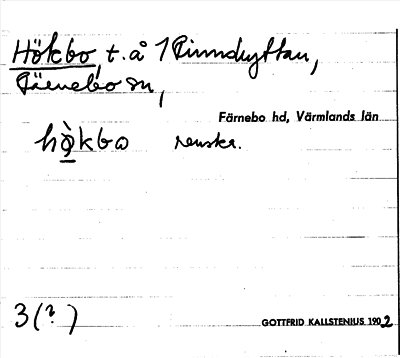 Hökbo, t. å 1 Finnshyttan,
Färnebo sn,
Färnebo hd, Värmlands län
hὸ̱kbo renskr.
3 (?)
GOTTFRID KALLSTENIUS 1902